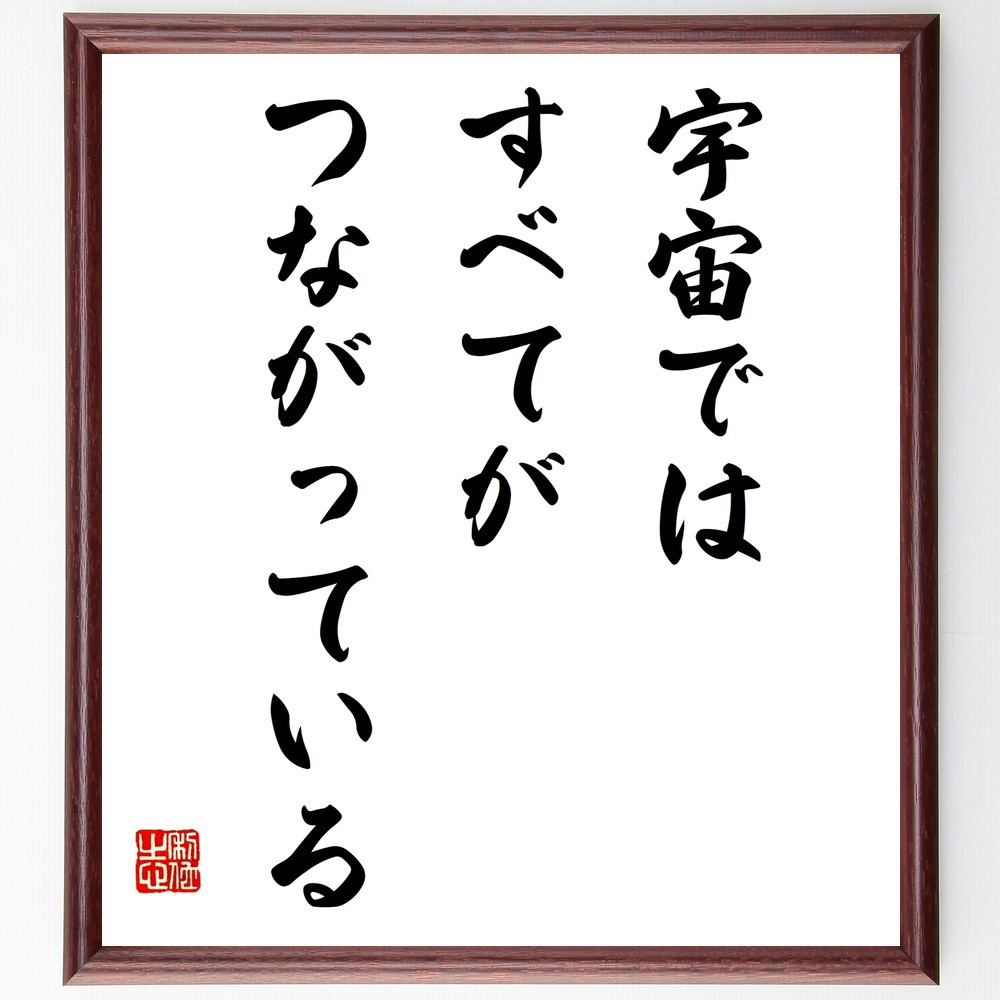 宇宙では
すべてが
つながっている